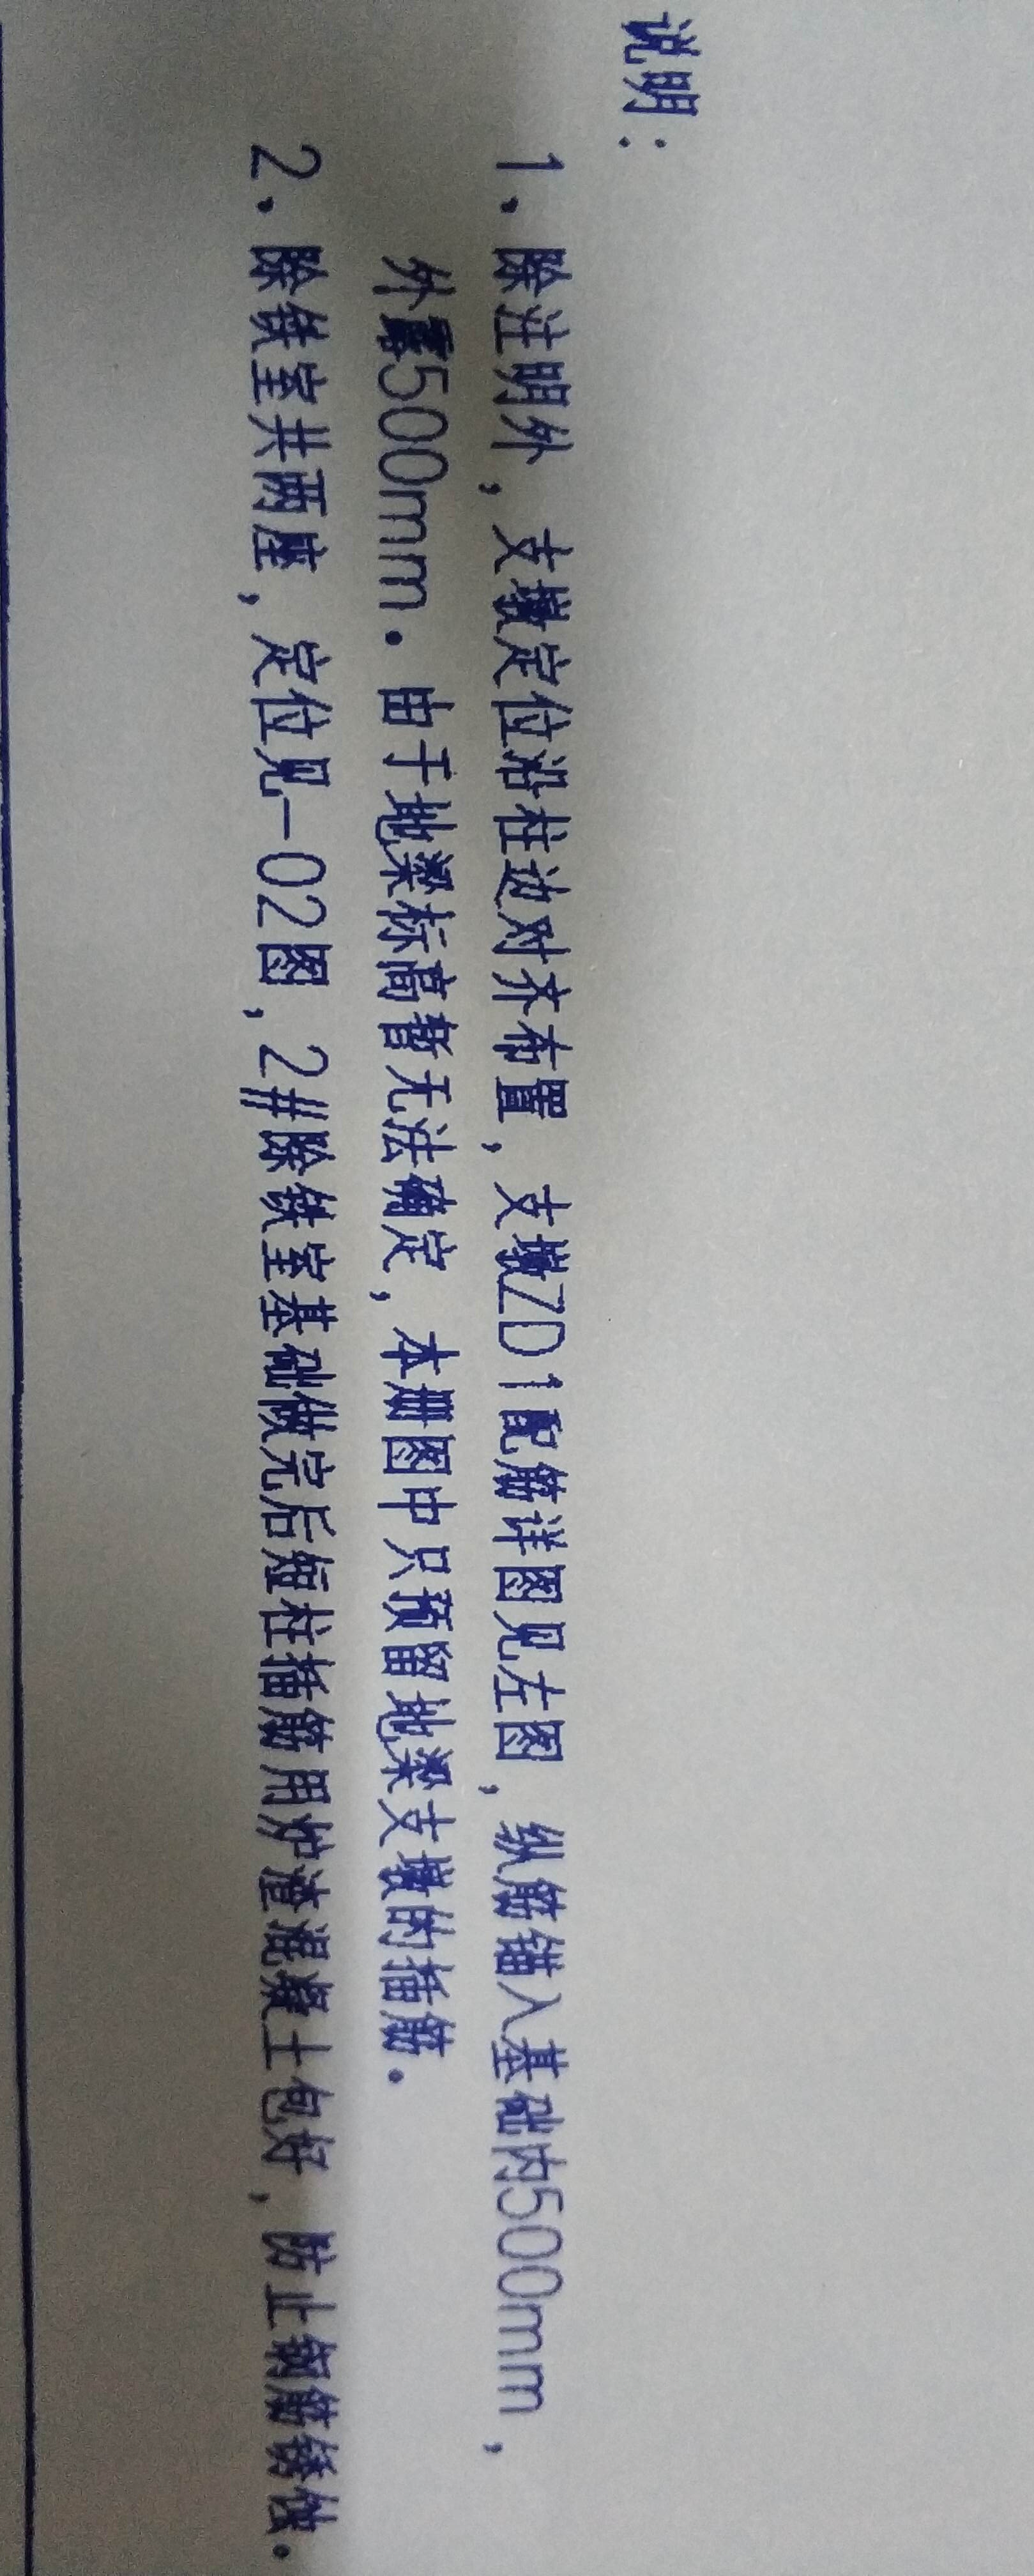 说明：
1、除注明外，支墩定位沿柱边对齐布置，支墩ZD1配筋详图见左图，纵筋锚入基础内500mm，
外露500mm．由于地梁标高暂无法确定，本册图中只预留地梁支墩的插筋．
2、除铁室共两座，定位见-02图，2#除铁室基础做完后短柱插筋用炉渣混凝土包好，防止钢筋锈蚀．